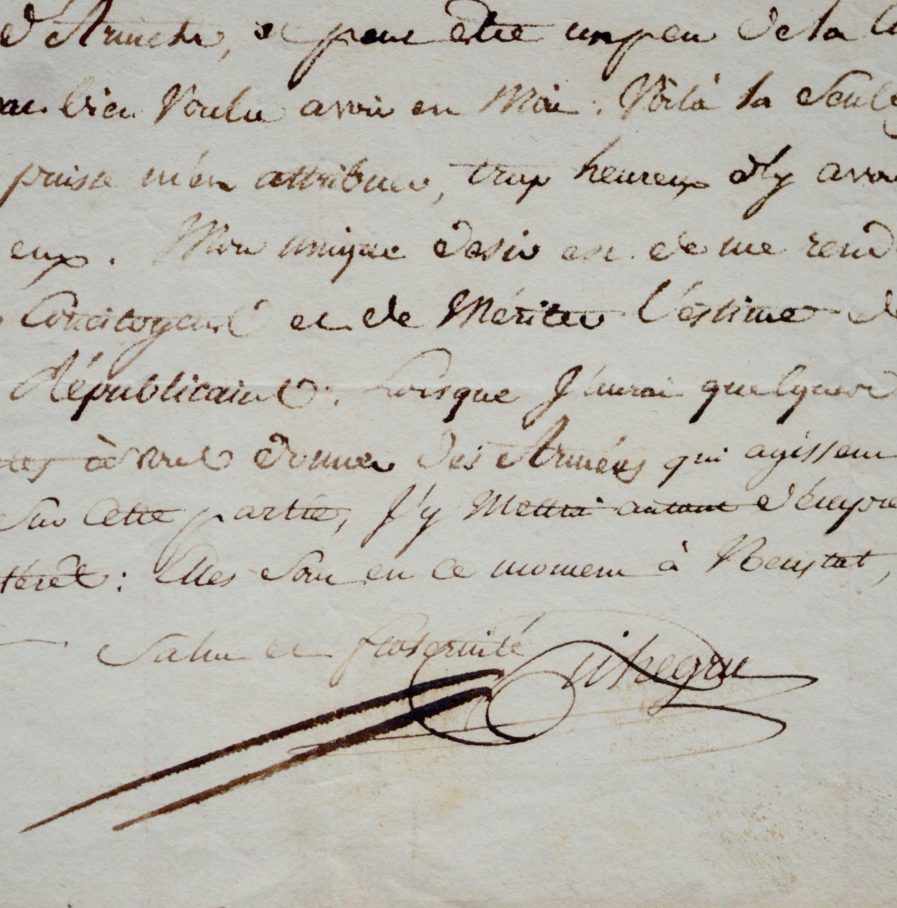 d'Armée, et peut être un peu de la
bien Voulu avoir en Moi. Voilà la Seule
puisse m'en attribuer, trop heureux d'y avoir
eux. Mon unique desir est de me rend
Concitoyens et de Mériter l'estime de
Républicains. Lorsque J'aurai quelques
à vous donner des Armées qui agissent
Sur Cette partie, J'y Mettrai autant d'empre
térêt: Elles Sont en ce moment à Neustat,
Salut et fraternité Pichegru